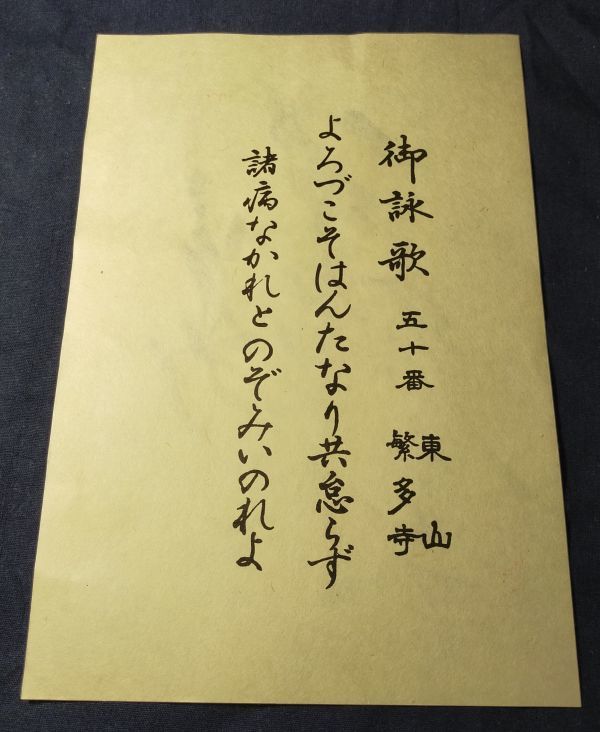 御詠歌 五十番 東山 繁多寺
よろづこそはんたなり共怠らず
諸病なかれとのぞみいのれよ